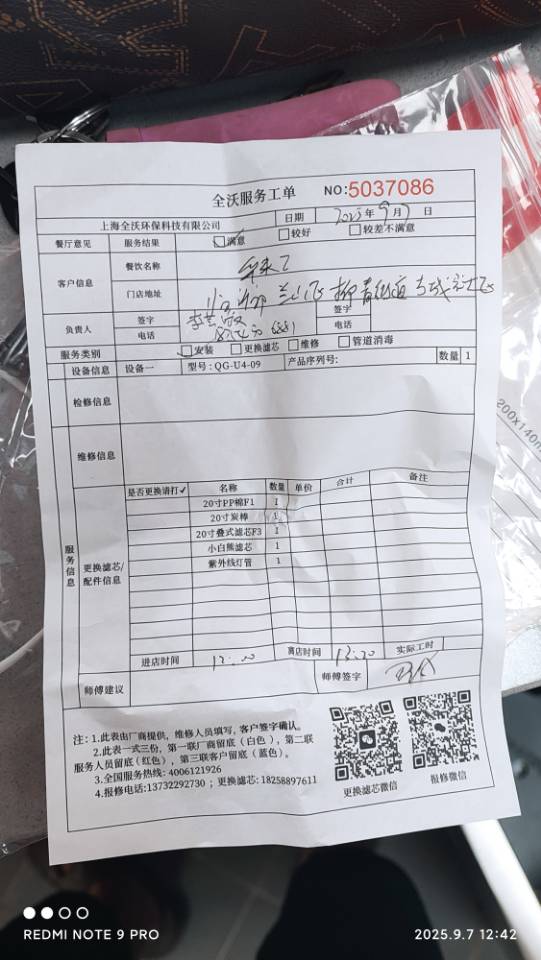 全沃服务工单 NO:5037086
上海全沃环保科技有限公司 日期 2025年9月7日
餐厅意见 服务结果 满意 较好 较差不满意
客户信息 餐饮名称
门店地址
负责人 签字 签字
电话 电话
服务类别 安装 更换滤芯 维修 管道消毒
设备信息 设备一 型号:QG-U4-09 产品序列号: 数量 1
检修信息
维修信息
服务信息
更换滤芯/配件信息
是否更换请打✓ 名称 数量 单价 合计 备注
20寸PP棉F1 1
20寸炭棒 1
20寸叠式滤芯F3 1
小白熊滤芯 1
紫外线灯管 1
进店时间 离店时间 实际工时
师傅建议 师傅签字
注:1.此表由厂商提供,维修人员填写,客户签字确认。
2.此表一式三份,第一联厂商留底(白色),第二联
服务人员留底(红色),第三联客户留底(蓝色)。
3.全国服务热线:4006121926
4.报修电话:13732292730;更换滤芯:18258897611
更换滤芯微信 报修微信
200x140m
REDMI NOTE 9 PRO
2025.9.7 12:42